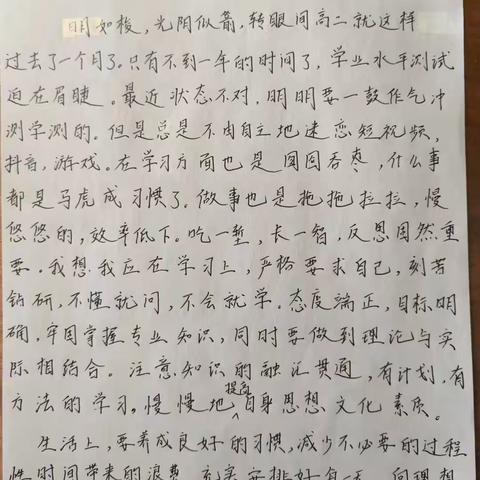 日月如梭,光阴似箭,转眼间高二就这样
过去了一个月了.只有不到一年的时间了,学业水平测试
迫在眉睫。最近状态不对,明明要一鼓作气冲
测学测的。但是总是不由自主地迷恋短视频,
抖音,游戏。在学习方面也是囫囵吞枣,什么事
都是马虎成习惯了。做事也是拖拖拉拉,慢
悠悠的,效率低下。吃一堑,长一智,反思固然重
要.我想我应在学习上,严格要求自己,刻苦
钻研,不懂就问,不会就学。态度端正,目标明
确,牢固掌握专业知识,同时要做到理论与实
际相结合。注意知识的融汇贯通,有计划,有
方法的学习。慢慢地提高自身思想文化素质。
生活上,要养成良好的习惯,减少不必要的过程
性时间带来的浪费,充实安排好每一天,向理想